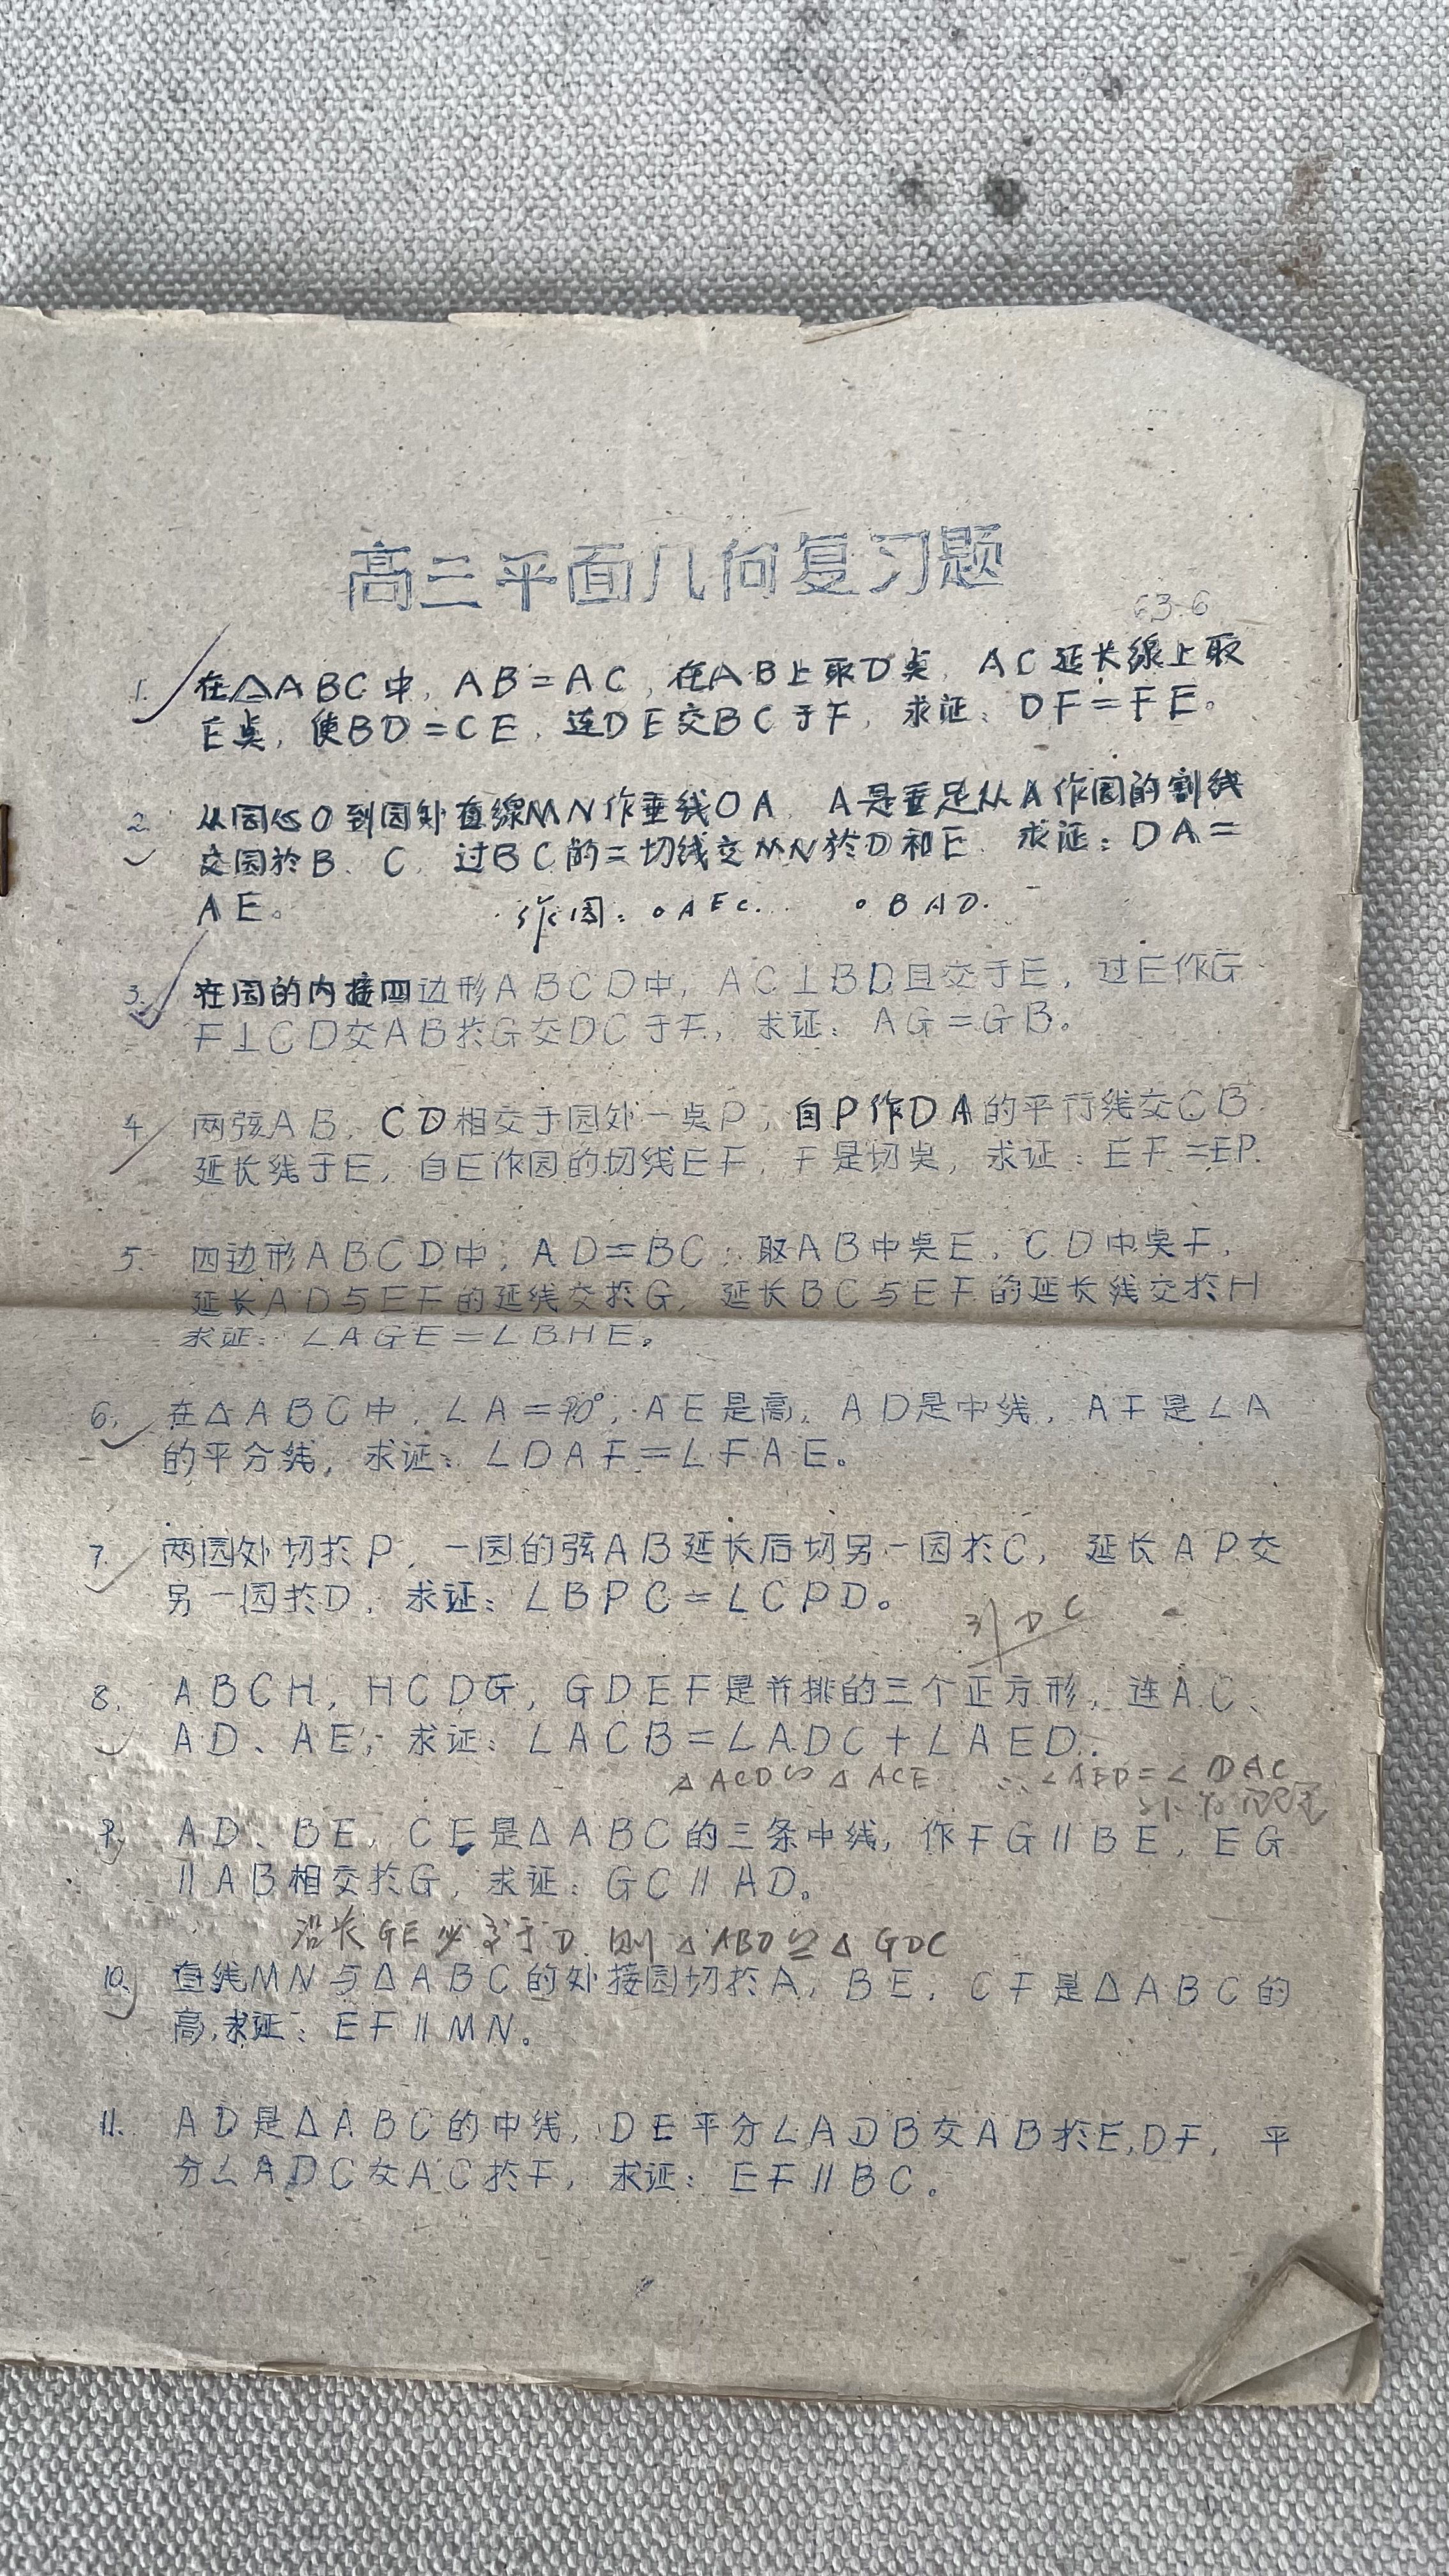 高三平面几何复习题
63.6
1. 在△ABC中, AB=AC, 在AB上取D点, AC延长线上取
E点, 使BD=CE, 连DE交BC于F, 求证: DF=FE。
2. 从园心O到园外直線MN作垂线OA, A是垂足从A作园的割线
交园於B、C, 过BC的二切线交MN於D和E, 求证: DA=
AE。
作园: o AEC. o BAD.
3. 在园的内接四边形ABCD中, AC⊥BD且交于E, 过E作G
F⊥CD交AB於G交DC于F, 求证: AG=GB。
4. 两弦AB、CD相交于园外一点P, 自P作DA的平行线交CB
延长线于E, 自E作园的切线EF, F是切点, 求证: EF=EP.
5. 四边形ABCD中, AD=BC, 取AB中点E, CD中点F,
延长AD与EF的延线交於G, 延长BC与EF的延长线交於H
求证: ∠AGE=∠BHE。
6. 在△ABC中, ∠A=90°, AE是高, AD是中线, AF是∠A
的平分线, 求证: ∠DAF=∠FAE。
7. 两园外切於P, 一园的弦AB延长后切另一园於C, 延长AP交
另一园於D, 求证: ∠BPC=∠CPD。
引DC
8. ABCH, HCDG, GDEF是并排的三个正方形, 连AC、
AD、AE, 求证: ∠ACB=∠ADC+∠AED.
△ACD∽△ACE ∴∠AED=∠DAC
9. AD、BE, CF是△ABC的三条中线, 作FG∥BE, EG
∥AB相交於G, 求证: GC∥AD。
GE必 于D 则△ABD≌△GDC
10. 直线MN与△ABC的外接园切於A, BE, CF是△ABC的
高,求证: EF∥MN。
11. AD是△ABC的中线, DE平分∠ADB交AB於E,DF, 平
分∠ADC交AC於F, 求证: EF∥BC。